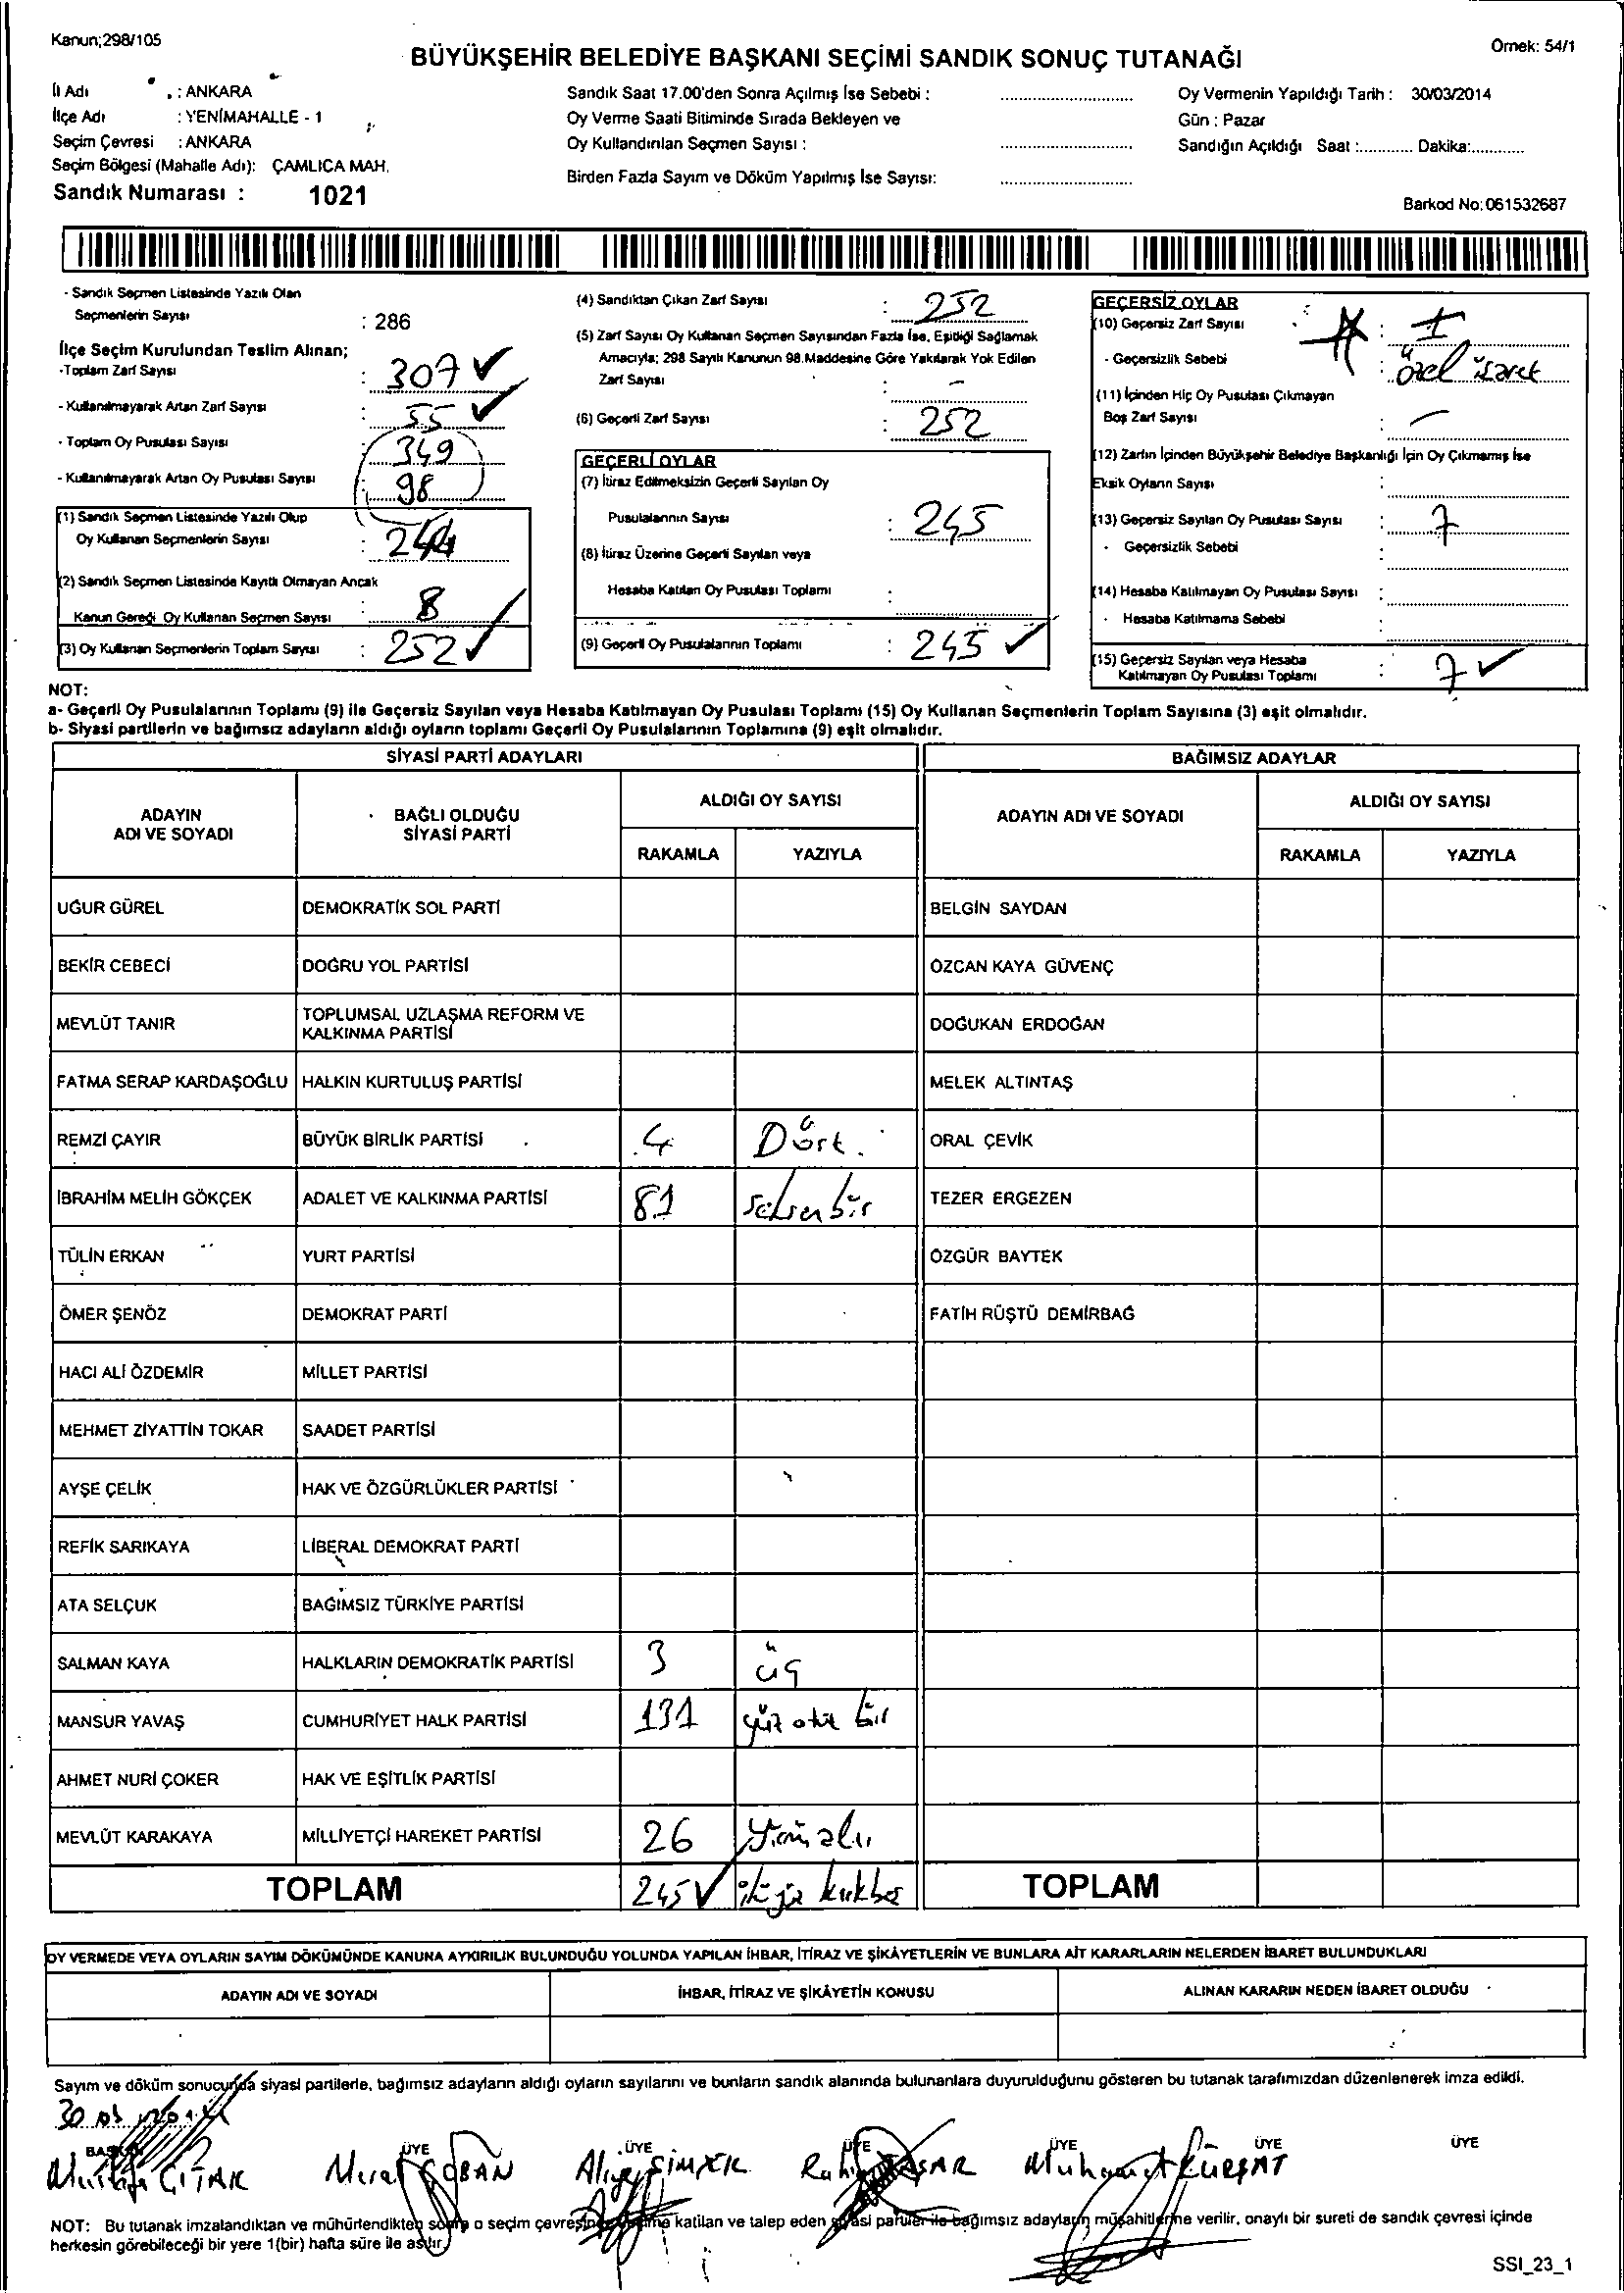 Kanun;298/105
Örnek: 54/1
BÜYÜKŞEHİR BELEDİYE BAŞKANI SEÇİMİ SANDIK SONUÇ TUTANAĞI
İl Adı : ANKARA
İlçe Adı : YENİMAHALLE - 1
Seçim Çevresi : ANKARA
Seçim Bölgesi (Mahalle Adı): ÇAMLICA MAH.
Sandık Numarası : 1021
Sandık Saat 17.00'den Sonra Açılmış İse Sebebi :
Oy Verme Saati Bitiminde Sırada Bekleyen ve
Oy Kullandırılan Seçmen Sayısı :
Birden Fazla Sayım ve Döküm Yapılmış İse Sayısı:
Oy Vermenin Yapıldığı Tarih : 30/03/2014
Gün : Pazar
Sandığın Açıldığı Saat :............ Dakika:............
Barkod No:061532687
- Sandık Seçmen Listesinde Yazılı Olan
Seçmenlerin Sayısı : 286
İlçe Seçim Kurulundan Teslim Alınan;
-Toplam Zarf Sayısı : 307
- Kullanılmayarak Artan Zarf Sayısı : 55
- Toplam Oy Pusulası Sayısı : 349
- Kullanılmayarak Artan Oy Pusulası Sayısı : 98
(1) Sandık Seçmen Listesinde Yazılı Olup
Oy Kullanan Seçmenlerin Sayısı : 244
(2) Sandık Seçmen Listesinde Kayıtlı Olmayan Ancak
Kanun Gereği Oy Kullanan Seçmen Sayısı : 8
(3) Oy Kullanan Seçmenlerin Toplam Sayısı : 252
(4) Sandıktan Çıkan Zarf Sayısı : 252
(5) Zarf Sayısı Oy Kullanan Seçmen Sayısından Fazla İse, Eşitliği Sağlamak
Amacıyla; 298 Sayılı Kanunun 98.Maddesine Göre Yakılarak Yok Edilen
Zarf Sayısı : -
(6) Geçerli Zarf Sayısı : 252
GEÇERLİ OYLAR
(7) İtiraz Edilmeksizin Geçerli Sayılan Oy
Pusulalarının Sayısı : 245
(8) İtiraz Üzerine Geçerli Sayılan veya
Hesaba Katılan Oy Pusulası Toplamı :
(9) Geçerli Oy Pusulalarının Toplamı : 245
GEÇERSİZ OYLAR
(10) Geçersiz Zarf Sayısı :
- Geçersizlik Sebebi : özel işaret
(11) İçinden Hiç Oy Pusulası Çıkmayan
Boş Zarf Sayısı : -
(12) Zarfın İçinden Büyükşehir Belediye Başkanlığı İçin Oy Çıkmamış İse
Eksik Oyların Sayısı :
(13) Geçersiz Sayılan Oy Pusulası Sayısı : 7
- Geçersizlik Sebebi :
(14) Hesaba Katılmayan Oy Pusulası Sayısı :
- Hesaba Katılmama Sebebi :
(15) Geçersiz Sayılan veya Hesaba
Katılmayan Oy Pusulası Toplamı : 7
NOT:
a- Geçerli Oy Pusulalarının Toplamı (9) ile Geçersiz Sayılan veya Hesaba Katılmayan Oy Pusulası Toplamı (15) Oy Kullanan Seçmenlerin Toplam Sayısına (3) eşit olmalıdır.
b- Siyasi partilerin ve bağımsız adayların aldığı oyların toplamı Geçerli Oy Pusulalarının Toplamına (9) eşit olmalıdır.
SİYASİ PARTİ ADAYLARI BAĞIMSIZ ADAYLAR
ADAYIN ADI VE SOYADI BAĞLI OLDUĞU SİYASİ PARTİ ALDIĞI OY SAYISI ADAYIN ADI VE SOYADI ALDIĞI OY SAYISI
RAKAMLA YAZIYLA RAKAMLA YAZIYLA
UĞUR GÜREL DEMOKRATİK SOL PARTİ BELGİN SAYDAN
BEKİR CEBECİ DOĞRU YOL PARTİSİ ÖZCAN KAYA GÜVENÇ
MEVLÜT TANIR TOPLUMSAL UZLAŞMA REFORM VE KALKINMA PARTİSİ DOĞUKAN ERDOĞAN
FATMA SERAP KARDAŞOĞLU HALKIN KURTULUŞ PARTİSİ MELEK ALTINTAŞ
REMZİ ÇAYIR BÜYÜK BİRLİK PARTİSİ 4 Dört ORAL ÇEVİK
İBRAHİM MELİH GÖKÇEK ADALET VE KALKINMA PARTİSİ 81 seksen bir TEZER ERGEZEN
TÜLİN ERKAN YURT PARTİSİ ÖZGÜR BAYTEK
ÖMER ŞENÖZ DEMOKRAT PARTİ FATİH RÜŞTÜ DEMİRBAĞ
HACI ALİ ÖZDEMİR MİLLET PARTİSİ
MEHMET ZİYATTİN TOKAR SAADET PARTİSİ
AYŞE ÇELİK HAK VE ÖZGÜRLÜKLER PARTİSİ
REFİK SARIKAYA LİBERAL DEMOKRAT PARTİ
ATA SELÇUK BAĞIMSIZ TÜRKİYE PARTİSİ
SALMAN KAYA HALKLARIN DEMOKRATİK PARTİSİ 3 üç
MANSUR YAVAŞ CUMHURİYET HALK PARTİSİ 131 yüz otuz bir
AHMET NURİ ÇOKER HAK VE EŞİTLİK PARTİSİ
MEVLÜT KARAKAYA MİLLİYETÇİ HAREKET PARTİSİ 26
TOPLAM 245 TOPLAM
OY VERMEDE VEYA OYLARIN SAYIM DÖKÜMÜNDE KANUNA AYKIRILIK BULUNDUĞU YOLUNDA YAPILAN İHBAR, İTİRAZ VE ŞİKÂYETLERİN VE BUNLARA AİT KARARLARIN NELERDEN İBARET BULUNDUKLARI
ADAYIN ADI VE SOYADI İHBAR, İTİRAZ VE ŞİKÂYETİN KONUSU ALINAN KARARIN NEDEN İBARET OLDUĞU
Sayım ve döküm sonucunda siyasi partilerle, bağımsız adayların aldığı oyların sayılarını ve bunların sandık alanında bulunanlara duyurulduğunu gösteren bu tutanak tarafımızdan düzenlenerek imza edildi.
BAŞKAN ÜYE ÜYE ÜYE ÜYE ÜYE ÜYE
Mustafa ÇITAK Murat ÇOBAN Aliye ŞİMŞEK YAŞAR Muhammet KÜRŞAT
NOT: Bu tutanak imzalandıktan ve mühürlendikten sonra o seçim çevresinde seçime katılan ve talep eden siyasi partiler ile bağımsız adayların müşahitlerine verilir, onaylı bir sureti de sandık çevresi içinde
herkesin görebileceği bir yere 1(bir) hafta süre ile asılır.
SSI_23_1